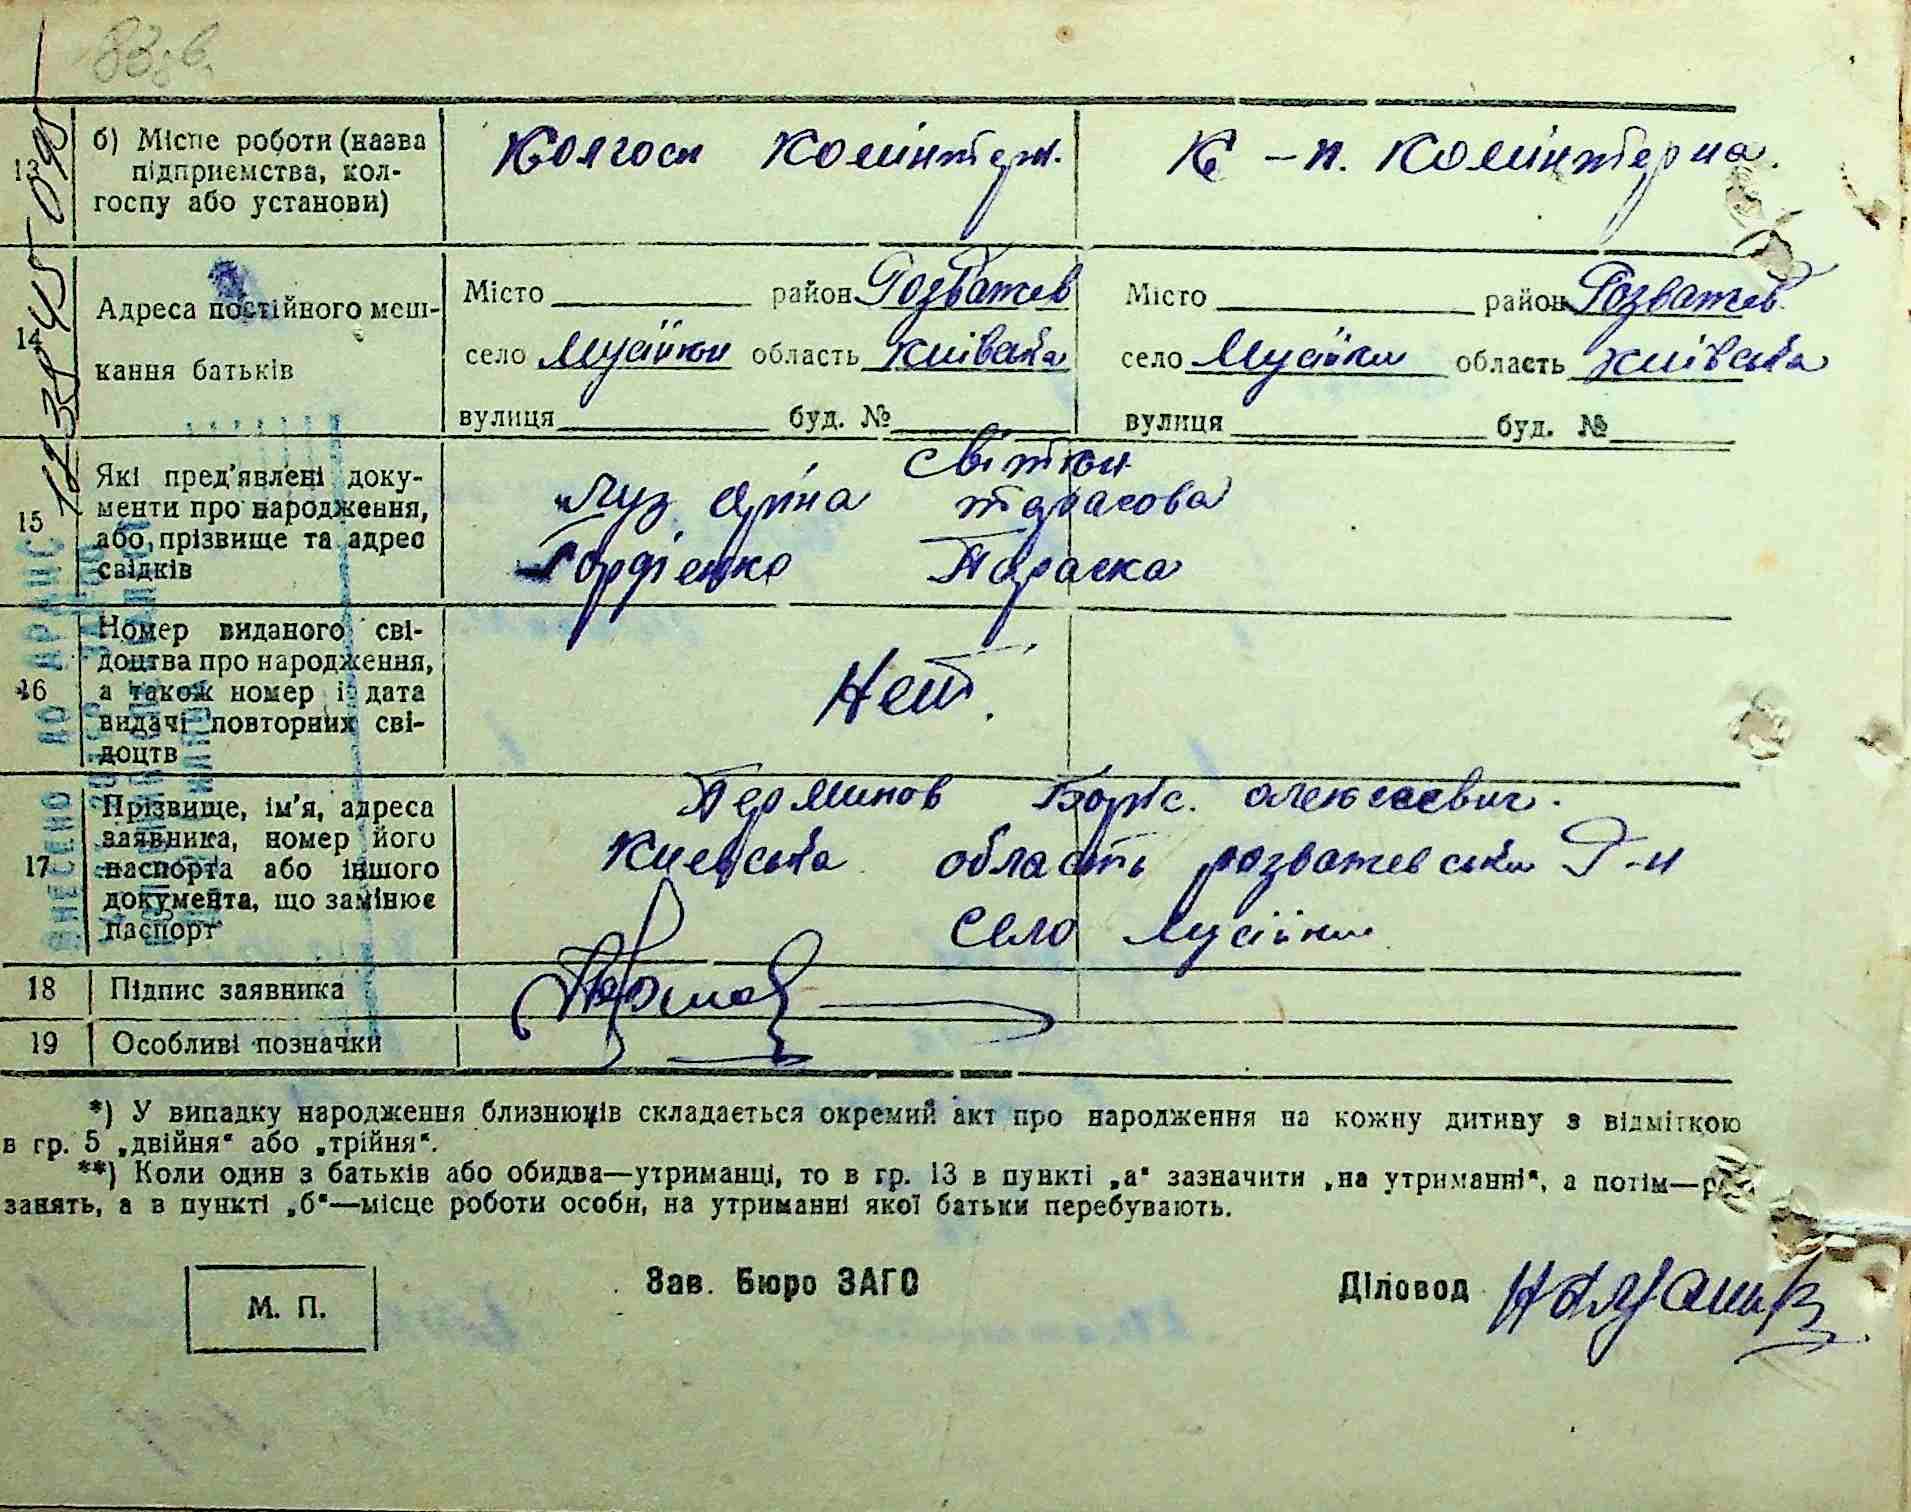 83 зв.
12385445095
13
б) Місце роботи (назва
підприємства, кол-
госпу або установи)
Колгосп Комінтерн.
К-п. Комінтерна.
14
Адреса постійного меш-
кання батьків
Місто район Розважев
село Мусійки область Київська
вулиця буд. №
Місто район Розважев
село Мусійки область Київська
вулиця буд. №
15
Які пред'явлені доку-
менти про народження,
або прізвище та адрес
свідків
Світки
Луз Оріна тарасова
Гордієнко Параска
16
Номер виданого сві-
доцтва про народження,
а також номер і дата
видачі повторних сві-
доцтв
Нет.
17
Прізвище, ім'я, адреса
заявника, номер його
паспорта або іншого
документа, що замінює
паспорт
Перминов Боріс. олексеевич.
Киевська область розважевський Р-н
Село Мусійки
18 Підпис заявника
19 Особливі позначки
ВНЕСЕНО ДО ДРАЦС
*) У випадку народження близнюків складається окремий акт про народження на кожну дитину з відміткою
в гр. 5 „двійня“ або „трійня“.
**) Коли один з батьків або обидва—утриманці, то в гр. 13 в пункті „а“ зазначити „на утриманні“, а потім—р
занять, а в пункті „б“—місце роботи особи, на утриманні якої батьки перебувають.
М. П.
Зав. Бюро ЗАГС
Діловод